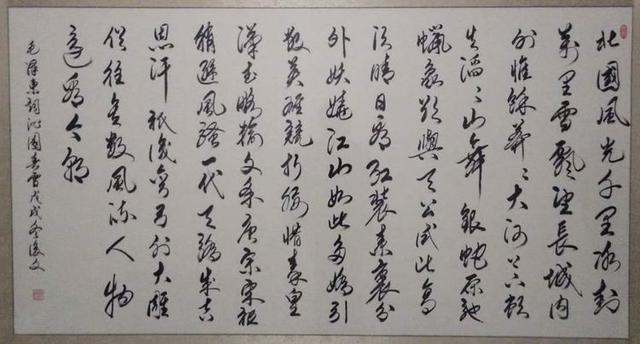 北國風光千里冰封
萬里雪飄望長城内
外惟餘莽〻大河上下頓
失滔〻山舞銀蛇原馳
蠟象欲與天公試比高
須晴日看紅裝素裹分
外妖嬈江山如此多嬌引
數英雄競折腰惜秦皇
漢武略輸文采唐宗宋祖
稍遜風騷一代天驕成吉
思汗祇識彎弓射大雕
俱往矣數風流人物
還看今朝
毛澤東詞沁園春雪戊戌冬俊文